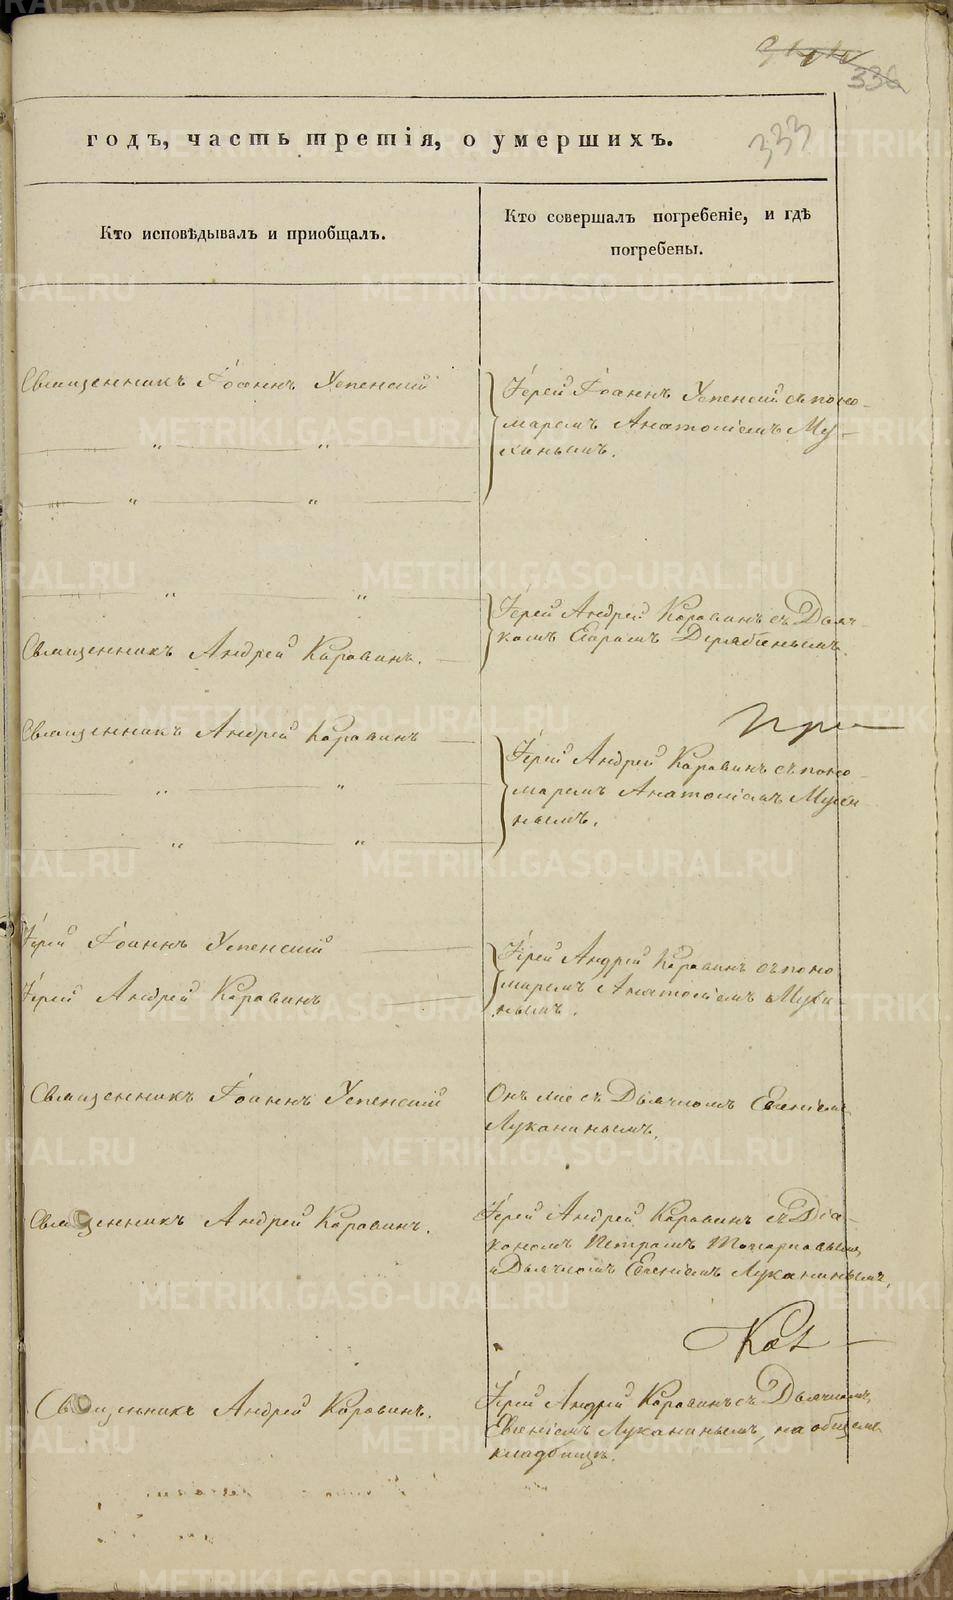 336
333
годъ, часть третія, о умершихъ.
Кто исповѣдывалъ и приобщалъ.
Кто совершалъ погребеніе, и гдѣ
погребены.
Священникъ Іоаннъ Успенскій
Іерей Іоаннъ Успенскій съ поно-
маремъ Анатоліемъ Му-
хинымъ.
— " — " —
— " — " —
— " — " —
Іерей Андрей Коровинъ съ Дьяч-
комъ
Священникъ Андрей Коровинъ.
При
Священникъ Андрей Коровинъ
Іерей Андрей Коровинъ съ поно-
маремъ Анатоліемъ Мухи
нымъ.
— " — " —
— " — " —
Іерей Іоаннъ Успенскій
Іерей Андрей Коровинъ
Іерей Андрей Коровинъ съ поно
маремъ Анатоліемъ Мухи
нымъ.
Священникъ Іоаннъ Успенскій
Онъ же съ Дьячкомъ Евгеніемъ
Луканинымъ.
Священникъ Андрей Коровинъ.
Іерей Андрей Коровинъ съ Діа-
кономъ Петромъ
и Дьячкомъ Евгеніемъ Луканинымъ.
Священникъ Андрей Коровинъ.
Іерей Андрей Коровинъ съ Дьячкомъ
Евгеніемъ Луканинымъ, на общемъ
кладбищѣ.
METRIKI.GASO-URAL.RU